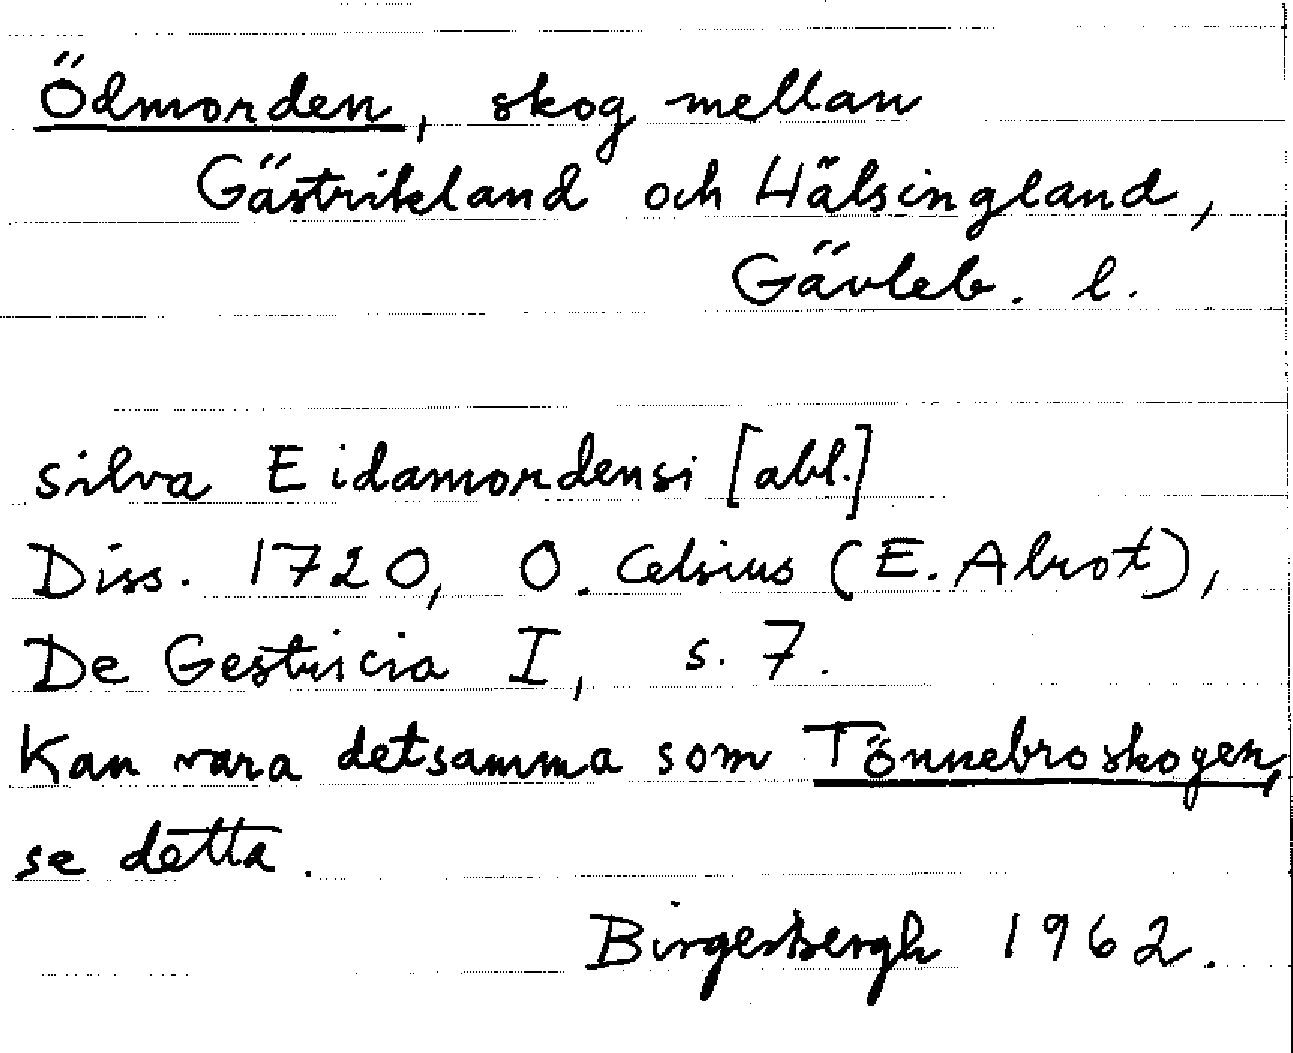 Ödmorden, skog mellan
Gästrikland och Hälsingland,
Gävleb. l.
silva Eidamordensi [abl.]
Diss. 1720, O. Celsius (E. Alrot),
De Gestricia I, s. 7.
Kan vara detsamma som Tönnebroskogen,
se detta.
Birgersbergh 1962.